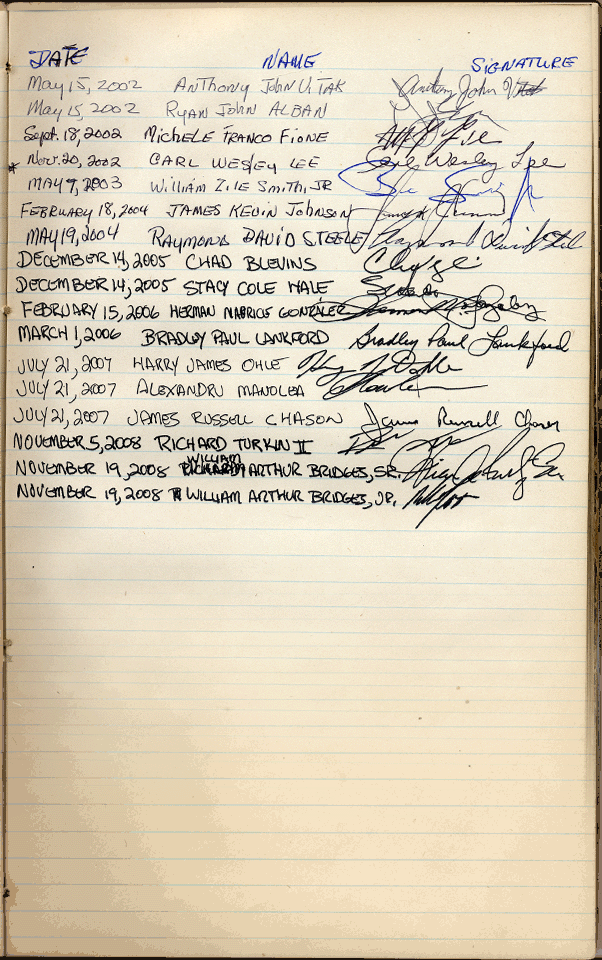 DATE NAME SIGNATURE
May 15, 2002 Anthony John Vitak Anthony John Vitak
May 15, 2002 Ryan John Alban
Sept. 18, 2002 Michele Franco Fione
* Nov. 20, 2002 Carl Wesley Lee Carl Wesley Lee
May 7, 2003 William Zile Smith, Jr
February 18, 2004 James Kevin Johnson
May 19, 2004 Raymond David Steele Raymond David Steele
December 14, 2005 Chad Blevins
December 14, 2005 Stacy Cole Hale
February 15, 2006 Herman Mabricio Gonzalez
March 1, 2006 Bradley Paul Lankford Bradley Paul Lankford
July 21, 2007 Harry James Ohle
July 21, 2007 Alexandru Manolea
July 21, 2007 James Russell Chason James Russell Chason
November 5, 2008 Richard Turkin II
November 19, 2008 William Arthur Bridges, Sr.
November 19, 2008 William Arthur Bridges, Jr.